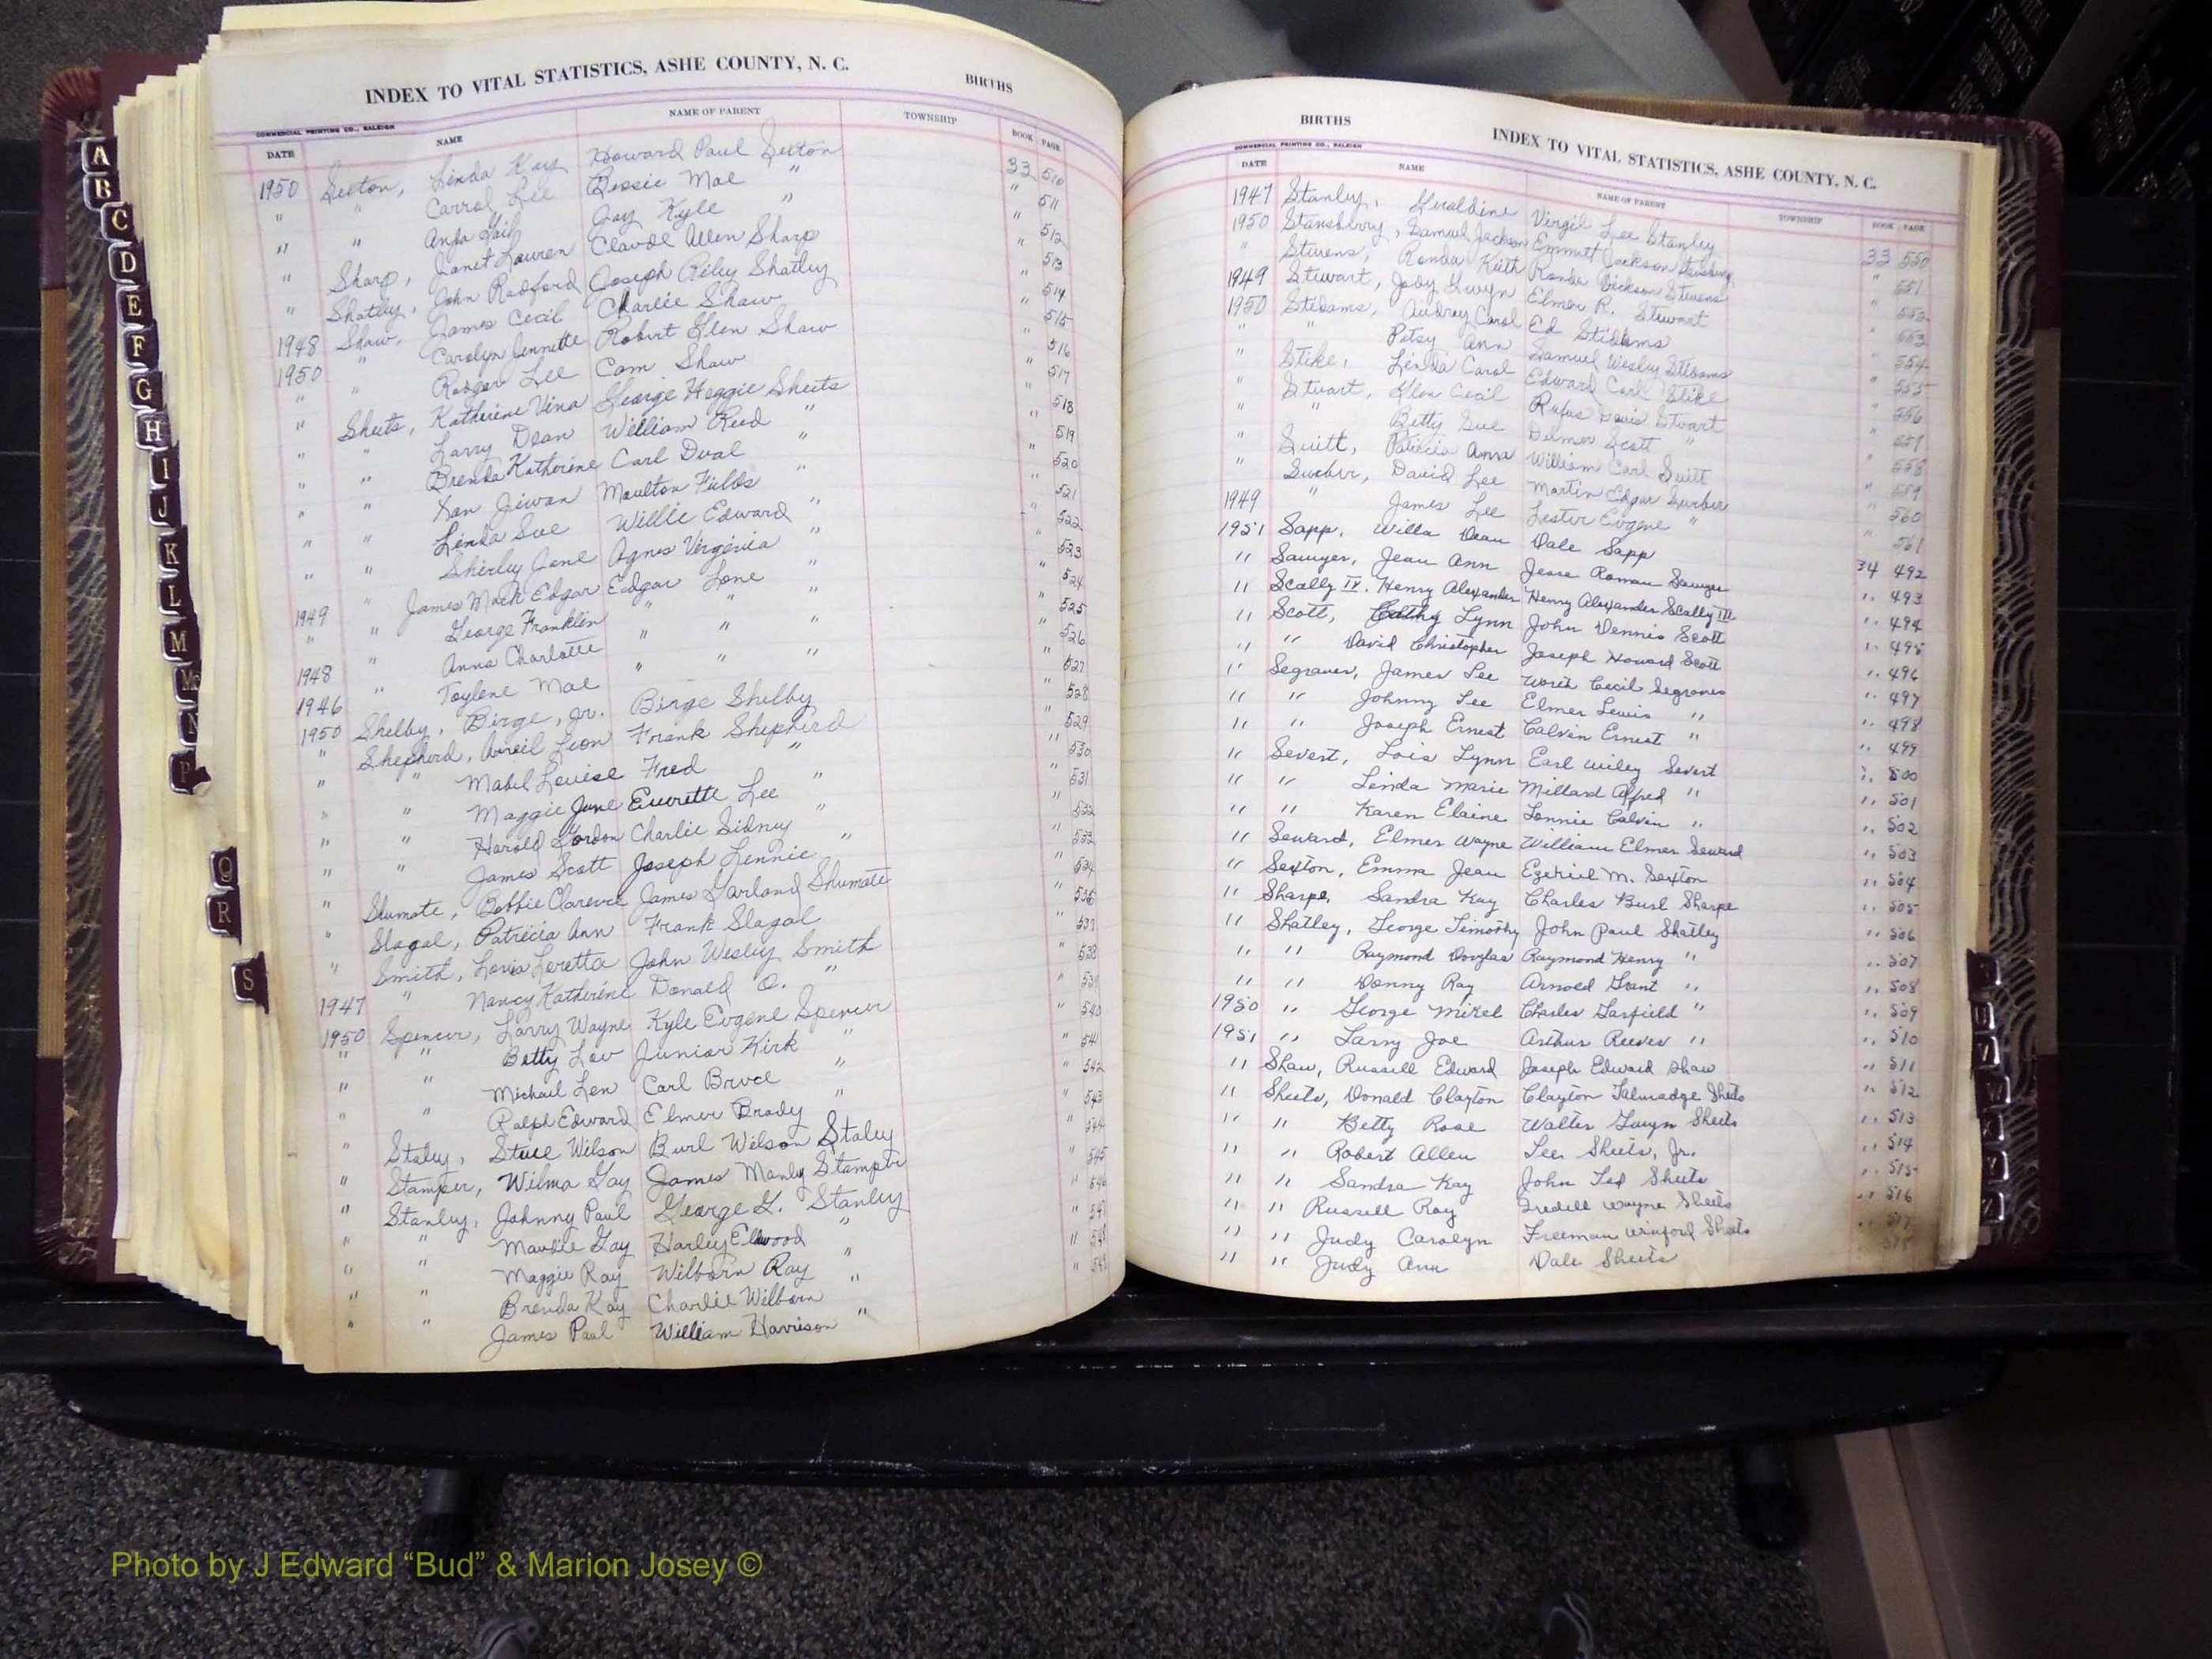 INDEX TO VITAL STATISTICS, ASHE COUNTY, N. C. BIRTHS
COMMERCIAL PRINTING CO., RALEIGH
DATE NAME NAME OF PARENT TOWNSHIP BOOK PAGE
1950 Sexton, Linda Kay Howard Paul Sexton 33 510
" " Carrol Lee Bessie Mae " " 511
" " Anja Gail Jay Kyle " " 512
" Sharp, Janet Lauren Claude Allen Sharp " 513
" Shatley, John Radford Joseph Riley Shatley " 514
1948 Shaw, James Cecil Charlie Shaw " 515
1950 " Carolyn Jennette Robert Glen Shaw " 516
" " Rodger Lee Cam Shaw " 517
" Sheets, Katherine Vina George Heggie Sheets " 518
" " Larry Dean William Reed " " 519
" " Brenda Katherine Carl Dual " " 520
" " Moulton Fields " " 521
" " Linda Sue Willie Edward " " 522
" " Shirley Jane Agnes Virginia " 523
1949 " James Mack Edgar Edgar Lone " " 524
" " George Franklin " " " " 525
1948 " Anna Charlotte " " " " 526
1946 " Toylene Mae " " " " 527
1950 Shelby, Birge, Jr. Birge Shelby " 528
" Shepherd, Leon Frank Shepherd " 529
" " Mabel Louise Fred " " 530
" " Maggie June Everette Lee " " 531
" " Harold Gordon Charlie Sidney " " 532
" " James Scott Joseph Lennie " " 533
" Shumate, Bobbie Clarence James Garland Shumate " 534
" Slagal, Patricia Ann Frank Slagal " 536
" Smith, Lovis Loretta John Wesley Smith " 537
1947 " Nancy Katherine Donald O. " " 538
1950 Spencer, Larry Wayne Kyle Eugene Spencer " 539
" " Betty Lou Junior Kirk " " 540
" " Michael Len Carl Bruce " " 541
" " Ralph Edward Elmer Brady " 542
" Staley, Steve Wilson Burl Wilson Staley " 543
" Stamper, Wilma Gay James Manly Stamper " 544
" Stanley, Johnny Paul George G. Stanley " 545
" " Maudie Gay Harley Ellwood " " 546
" " Maggie Ray Wilborn Ray " " 547
" " Brenda Kay Charlie Wilborn " " 548
" " James Paul William Harrison " " 549
BIRTHS INDEX TO VITAL STATISTICS, ASHE COUNTY, N. C.
COMMERCIAL PRINTING CO., RALEIGH
DATE NAME NAME OF PARENT TOWNSHIP BOOK PAGE
1947 Stanley, Geraldine Virgil Lee Stanley 33 550
1950 Stansberry, Samuel Jackson Emmett Jackson Stansberry " 551
" Stevens, Ronda Keith Ronda Dickson Stevens " 552
1949 Stewart, Joby Gwyn Elmer R. Stewart " 553
1950 Stidams, Audrey Carol Ed Stidams " 554
" " Patsy Ann Samuel Wesley Stidams " 555
" Stike, Linda Carol Edward Carl Stike " 556
" Stuart, Glen Cecil Rufus Davis Stuart " 557
" " Betty Sue Delmer Scott " " 558
" Suitt, Patricia Anna William Carl Suitt " 559
" Surber, David Lee Martin Edgar Surber " 560
1949 " James Lee Lester Eugene " " 561
1951 Sapp, Willa Dean Dale Sapp 34 492
" Sawyer, Jean Ann Jesse Roman Sawyer " 493
" Scally IV. Henry Alexander Henry Alexander Scally III " 494
" Scott, Cathy Lynn John Dennis Scott " 495
" " David Christopher Joseph Howard Scott " 496
" Segraves, James Lee Worth Cecil Segraves " 497
" " Johnny Lee Elmer Lewis " " 498
" " Joseph Ernest Calvin Ernest " " 499
" Severt, Lois Lynn Earl Wiley Severt " 500
" " Linda Marie Millard Alfred " " 501
" " Karen Elaine Lonnie Calvin " " 502
" Seward, Elmer Wayne William Elmer Seward " 503
" Sexton, Emma Jean Ezekiel M. Sexton " 504
" Sharpe, Sandra Kay Charles Burl Sharpe " 505
" Shatley, George Timothy John Paul Shatley " 506
" " Raymond Douglas Raymond Henry " " 507
" " Donny Ray Arnold Grant " " 508
1950 " George Mikel Charles Garfield " " 509
1951 " Larry Joe Arthur Reeves " " 510
" Shaw, Russell Edward Joseph Edward Shaw " 511
" Sheets, Donald Clayton Clayton Talmadge Sheets " 512
" " Betty Rose Walter Gwyn Sheets " 513
" " Robert Allen Lee Sheets, Jr. " 514
" " Sandra Kay John Ted Sheets " 515
" " Russell Ray Iredell Wayne Sheets " 516
" " Judy Carolyn Freeman Winford Sheets " 517
" " Judy Ann Dale Sheets 518
A
B
C
D
E
F
G
H
I
J
K
L
M
Mc
N
P
Q
R
S
U
V
W
Y
Z
Photo by J Edward “Bud” & Marion Josey ©